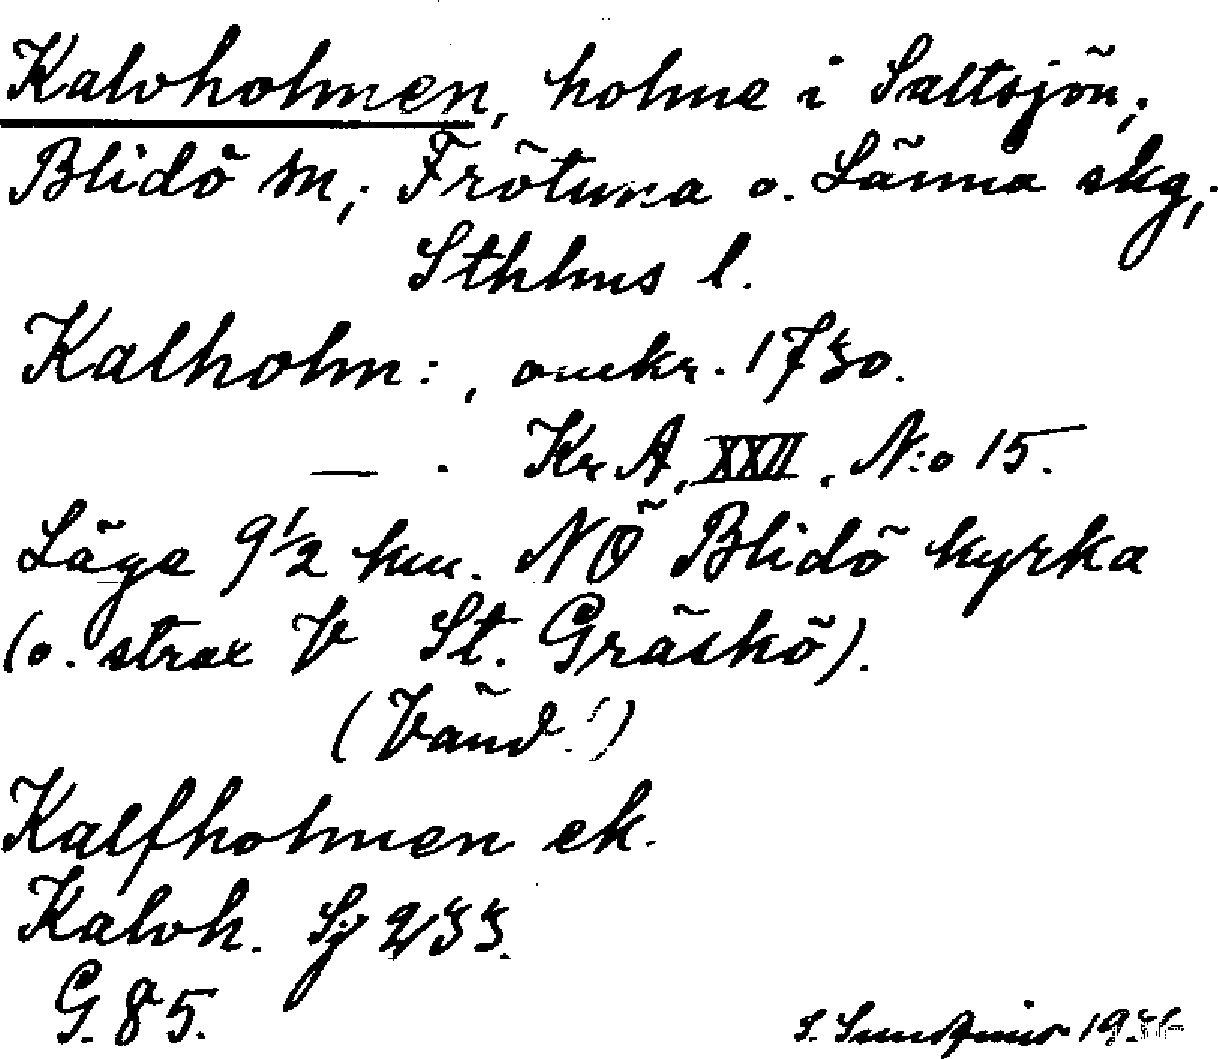 Kalvholmen, holme i Saltsjön,
Blidö sn, Frötuna o. Länna skg,
Sthlms l.
Kalholm:, omkr. 1730.
— . Kr. A, XXII, N:o 15.
Läge 9 1/2 km. NÖ Blidö kyrka
(o. strax V St. Gräskö).
(Vänd!)
Kalfholmen ek.
Kalvh. Sj 233.
G. 85.
S.